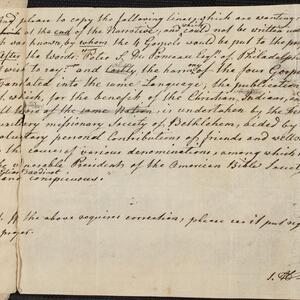 nd please to copy the following lines, which are wanting
at the end of the Narrative; and could not be written un
was known by whom the 4 Gospels would be put to the p
fter the Words: "Peter S. Du Ponceau Esqr. of Philadelph
wise to say: and lastly the harmony of the four Gosp
translated into the same Language, the publication
which, for the benefit of the Christian Indians, as
of the same Nation, is undertaken by the
missionary Society of Bethlehem, aided by
voluntary personal Contributions of friends and well
to the cause, of various denominations, among which
he venerable Presidents of the American Bible Society
Boudinot
and conspicuous."
If the above requires correction, please see it put rig
proper.